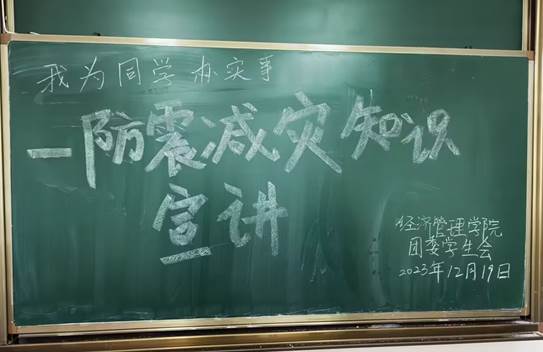 我为同学办实事
—防震减灾知识
宣讲
经济管理学院
团委学生会
2023年12月19日